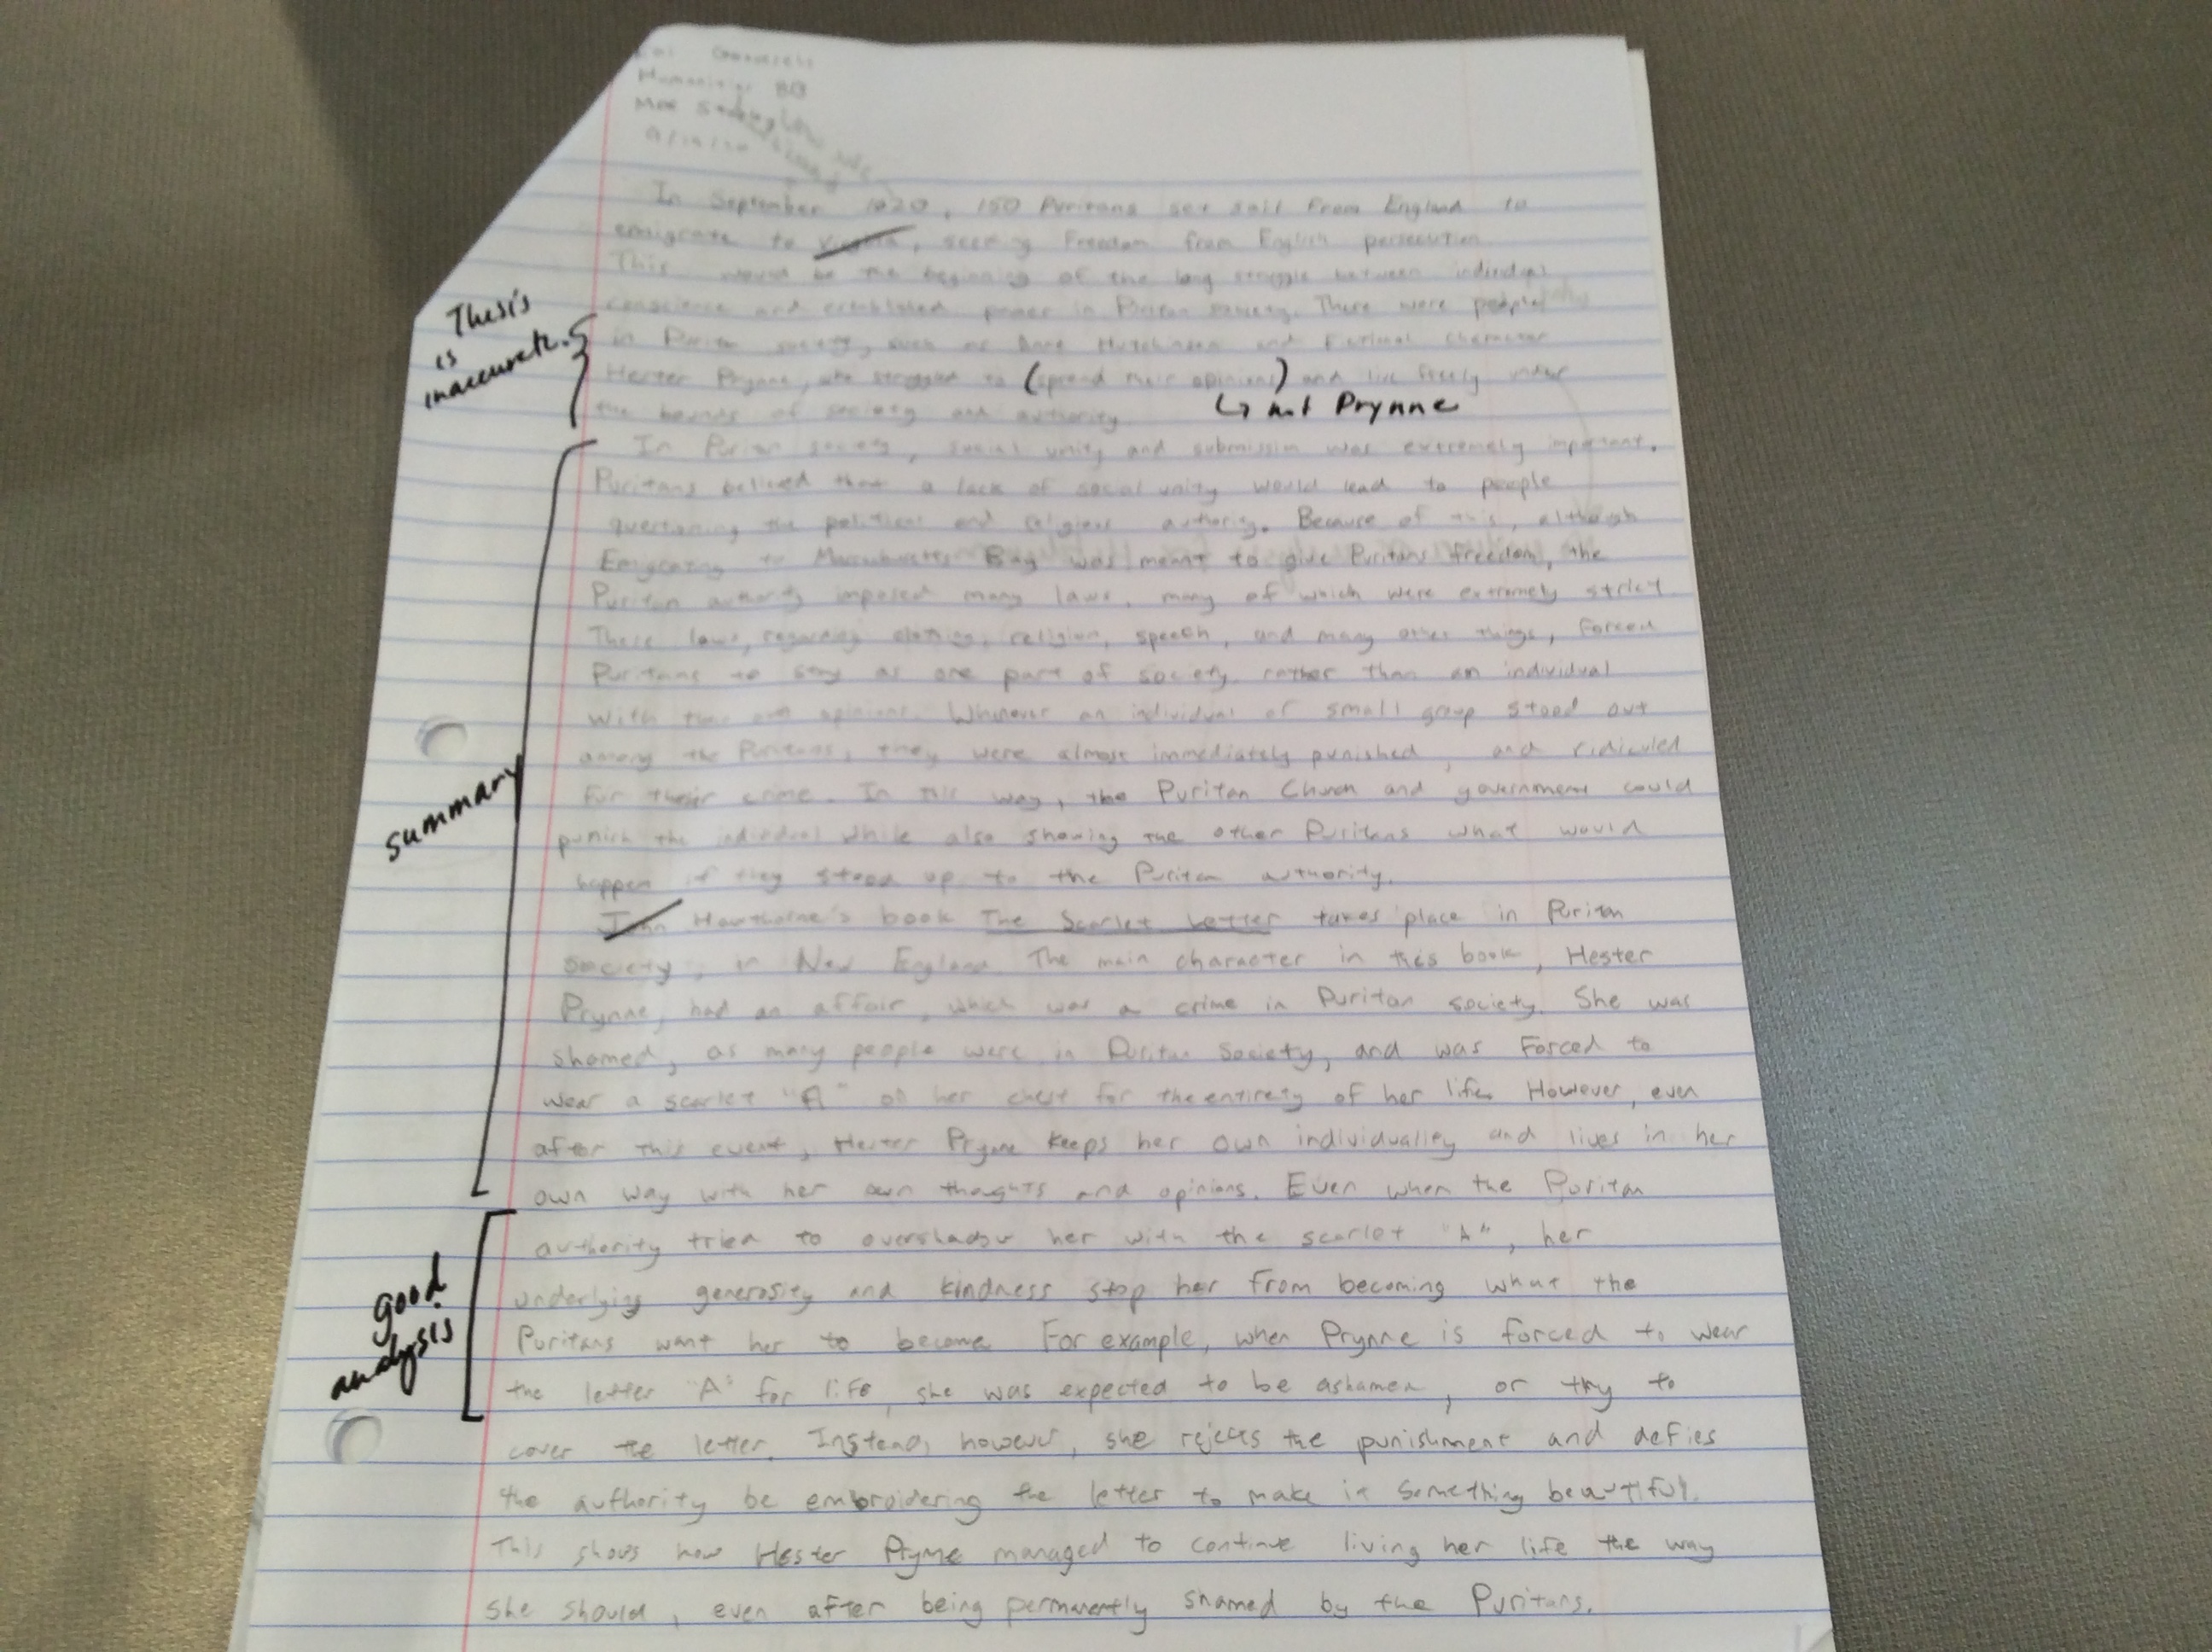 Humanities 8B
In September 1620, 150 Puritans set sail from England to
emigrate to Virginia, seeking Freedom from English persecution.
This would be the beginning of the long struggle between individual
conscience and established power in Puritan society. There were people
Thesis is inaccurate.
in Puritan society, such as Anne Hutchinson and Fictional character
Hester Prynne, who struggled to (spread their opinions) and live freely under
the bounds of society and authority.
↳ not Prynne
In Puritan society, social unity and submission was extremely important.
Puritans believed that a lack of social unity would lead to people
questioning the political and religious authority. Because of this, although
Emigrating to Massachusetts Bay was meant to give Puritans freedom, the
Puritan authority imposed many laws, many of which were extremely strict.
These laws, regarding clothing, religion, speech, and many other things, forced
Puritans to stay as one part of society rather than an individual
with their own opinions. Whenever an individual or small group stood out
among the Puritans, they were almost immediately punished, and ridiculed
For their crime. In this way, the Puritan Church and government could
summary
punish the individual while also showing the other Puritans what would
happen if they stood up to the Puritan authority.
John Hawthorne's book The Scarlet Letter takes place in Puritan
society, in New England. The main character in this book, Hester
Prynne, had an affair, which was a crime in Puritan society. She was
shamed, as many people were in Puritan Society, and was Forced to
wear a scarlet "A" on her chest for the entirety of her life. However, even
after this event, Hester Prynne keeps her own individuality and lives in her
own way with her own thoughts and opinions. Even when the Puritan
authority tried to overshadow her with the scarlet "A", her
underlying generosity and kindness stop her from becoming what the
good analysis
Puritans want her to become. For example, when Prynne is forced to wear
the letter "A" for life, she was expected to be ashamed, or try to
cover the letter. Instead, however, she rejects the punishment and defies
the authority be embroidering the letter to make it something beautiful.
This shows how Hester Prynne managed to continue living her life the way
she should, even after being permanently shamed by the Puritans.